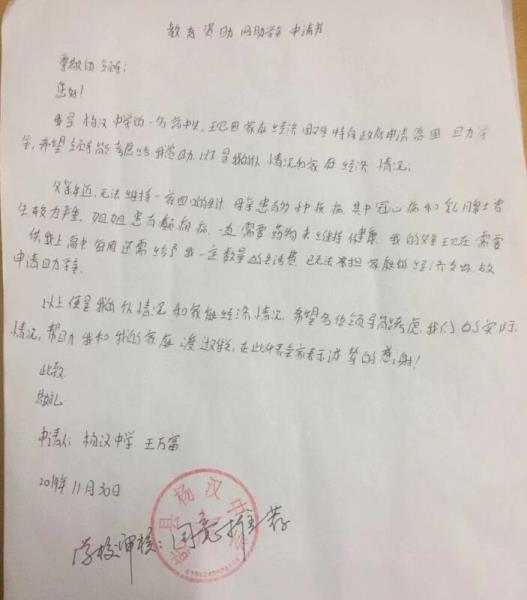 教育资助网助学金申请书
尊敬的领导:
您好!
我是杨汉中学的一名高中生,现因家庭经济困难特向政府申请贫困助学
金,希望领导能考虑给我资助.以下是我的情况和家庭经济情况:
父亲年迈,无法维持一家四口的生计.母亲患有多种疾病,其中冠心病和乳腺增
生较为严重,姐姐患有癫痫病,一直需要药物来维持健康.我的父亲现在需要
供我上高中每周还需给予我一定数量的生活费,已无法承担家庭的经济支出,故
申请助学金.
以上便是我的情况和家庭经济情况,希望各位领导能考虑我们的实际
情况,帮助我和我的家庭渡过难关,在此代表全家表示诚挚的感谢!
此致
敬礼
申请人:杨汉中学 王万富
2019年11月30日
学校审核:同意推荐
县杨汉中学